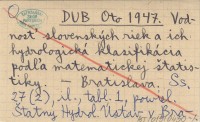 DUB Oto 1947. Vod-
nosť slovenských riek a ich
hydrologické klasifikácia
podľa matematickej štatis-
tiky. — Bratislava. Ss.
27 (2), il., tabl. 1, powiel.
Štatny Hydrol. Ustav v Bra-